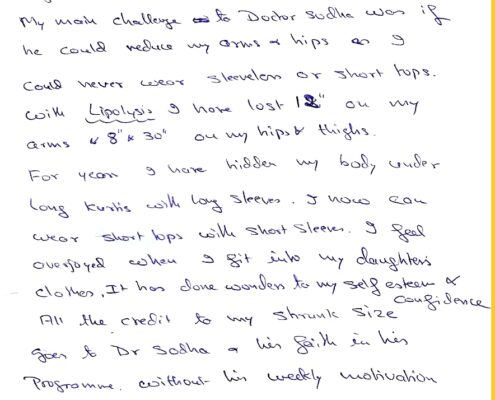 My main challenge to Doctor Sodha was if
he could reduce my arms & hips as I
could never wear sleeveless or short tops.
with Lipolysis I have lost 12" on my
arms & 8" & 30" on my hips & thighs.
For years I have hidden my body under
long Kurtis with long sleeves. I now can
wear short tops with short sleeves. I feel
overjoyed when I fit into my daughters
clothes. It has done wonders to my self esteem &
confidence
All the credit to my shrunk size
goes to Dr Sodha & his faith in his
Programme. without his weekly motivation